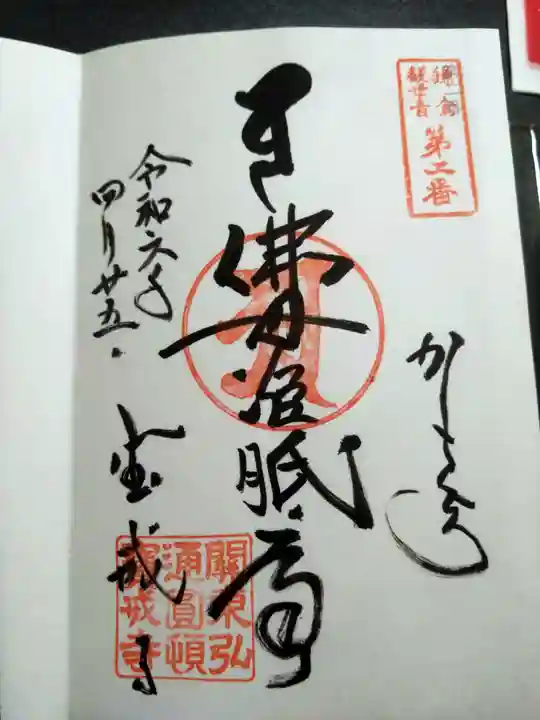 鎌倉
觀世音
第二番
かまくら
佛母准胝尊
令和六年
四月廿五
宝戒寺
關東弘
通圓頓
寶戒寺